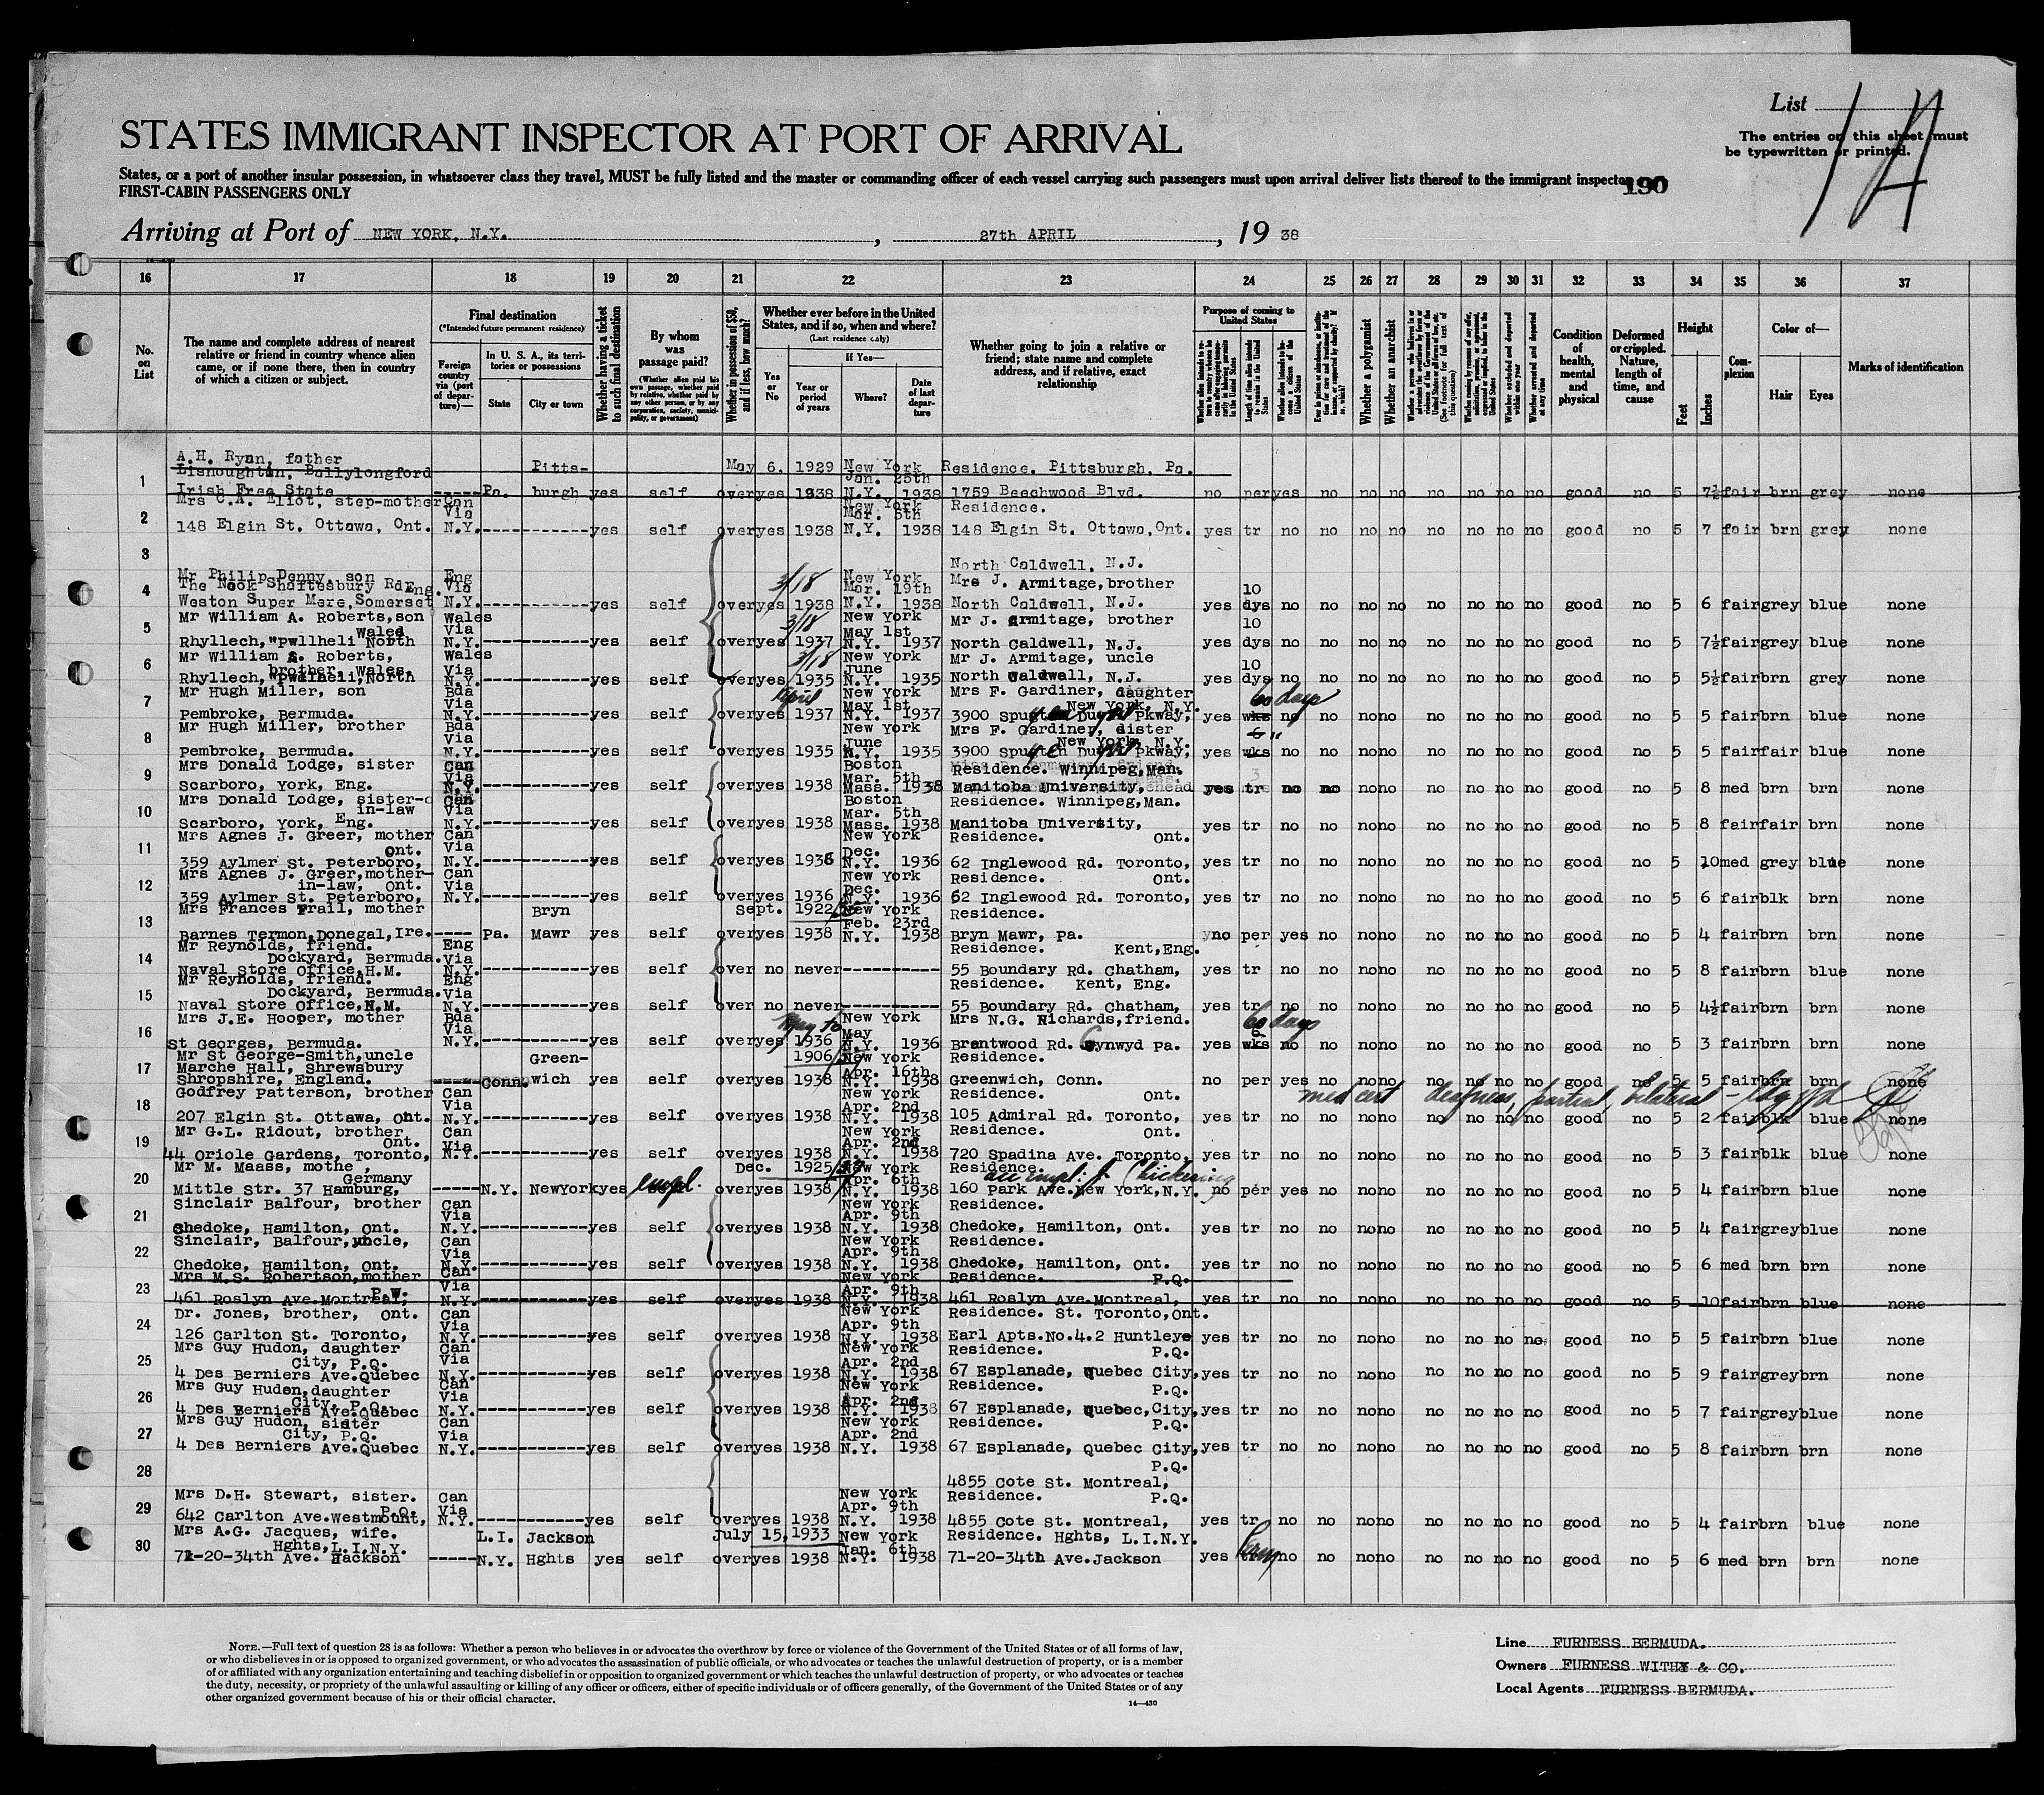 List 1A
STATES IMMIGRANT INSPECTOR AT PORT OF ARRIVAL
The entries on this sheet must
be typewritten or printed.
States, or a port of another insular possession, in whatsoever class they travel, MUST be fully listed and the master or commanding officer of each vessel carrying such passengers must upon arrival deliver lists thereof to the immigrant inspector
190
FIRST-CABIN PASSENGERS ONLY
Arriving at Port of NEW YORK, N.Y. , 27th APRIL , 19 38
16 17 18 19 20 21 22 23 24 25 26 27 28 29 30 31 32 33 34 35 36 37
No. on List
The name and complete address of nearest relative or friend in country whence alien came, or if none there, then in country of which a citizen or subject.
Final destination
(*Intended future permanent residence)
Foreign country via (port of departure)—
In U. S. A., its territories or possessions
State
City or town
Whether having a ticket to such final destination
By whom was passage paid?
(Whether alien paid his own passage, whether paid by relative, whether paid by any other person, or by any corporation, society, municipality, or government)
Whether in possession of $50, and if less, how much?
Whether ever before in the United States, and if so, when and where?
(Last residence only)
Yes or No
If Yes—
Year or period of years
Where?
Date of last departure
Whether going to join a relative or friend; state name and complete address, and if relative, exact relationship
Purpose of coming to United States
Length of time alien intends to remain in the United States
Whether alien intends to become a citizen of the United States
Whether a polygamist
Whether an anarchist
Whether excluded and deported within one year
Whether arrested and deported at any time
Condition of health, mental and physical
Deformed or crippled. Nature, length of time, and cause
Height
Feet
Inches
Complexion
Color of—
Hair
Eyes
Marks of identification
A.H. Ryan, father
Lisnoughtan, Ballylongford Pitts- May 6. 1929 New York Residence. Pittsburgh. Pa.
Jan. 25th
1 Irish Free State ----- Pa. burgh yes self over yes 1938 N.Y. 1938 1759 Beechwood Blvd. no per yes no no no no no no no good no 5 7½ fair brn grey none
Mrs C.A. Eliot, step-mother Can Via New York Mar. 5th Residence.
2 148 Elgin St. Ottawa, Ont. N.Y. ----------- yes self over yes 1938 N.Y. 1938 148 Elgin St. Ottawa, Ont. yes tr no no no no no no no no good no 5 7 fair brn grey none
3 North Caldwell, N.J.
Mr Philip Denny, son Eng 3/18 New York Mrs J. Armitage, brother
The Nook Shaftesbury Rd Eng. Via Mar. 19th 10
4 Weston Super Mare, Somerset N.Y. ----------- yes self over yes 1938 N.Y. 1938 North Caldwell, N.J. yes dys no no no no no no no no good no 5 6 fair grey blue none
Mr William A. Roberts, son Wales 3/18 New York Mr J. Armitage, brother
Wales Via May 1st 10
5 Rhyllech, "Pwllheli North N.Y. ----------- yes self over yes 1937 N.Y. 1937 North Caldwell, N.J. yes dys no no no no no no no no good no 5 7½ fair grey blue none
Mr William A. Roberts, Wales 3/18 New York Mr J. Armitage, uncle
brother, Wales. Via June 10
6 Rhyllech, "Pwllheli, North N.Y. ----------- yes self over yes 1935 N.Y. 1935 North Caldwell, N.J. yes dys no no no no no no no no good no 5 5½ fair brn grey none
Mr Hugh Miller, son Bda April New York Mrs F. Gardiner, daughter 60 days
Via May 1st New York, N.Y.
7 Pembroke, Bermuda. N.Y. ----------- yes self over yes 1937 N.Y. 1937 3900 Spuyten Duyvil Pkway, yes wks no no no no no no no no good no 5 5 fair brn blue none
Mr Hugh Miller, brother Bda New York Mrs F. Gardiner, sister 6 "
Via June New York, N.Y.
8 Pembroke, Bermuda. N.Y. ----------- yes self over yes 1935 N.Y. 1935 3900 Spuyten Duyvil Pkway, yes wks no no no no no no no no good no 5 5 fair fair blue none
Mrs Donald Lodge, sister Can Boston Residence. Winnipeg, Man.
Via Mar. 5th
9 Scarboro, York, Eng. N.Y. ----------- yes self over yes 1938 Mass. 1938 Manitoba University, yes tr no no no no no no no no good no 5 8 med brn brn none
Mrs Donald Lodge, sister- Can Boston Residence. Winnipeg, Man.
in-law Via Mar. 5th
10 Scarboro, York, Eng. N.Y. ----------- yes self over yes 1938 Mass. 1938 Manitoba University, yes tr no no no no no no no no good no 5 8 fair fair brn none
Mrs Agnes J. Greer, mother Can New York Residence. Ont.
Ont. Via Dec.
11 359 Aylmer St. Peterboro, N.Y. ----------- yes self over yes 1936 N.Y. 1936 62 Inglewood Rd. Toronto, yes tr no no no no no no no no good no 5 10 med grey blue none
Mrs Agnes J. Greer, mother- Can New York Residence. Ont.
in-law, Ont. Via Dec.
12 359 Aylmer St. Peterboro, N.Y. ----------- yes self over yes 1936 N.Y. 1936 62 Inglewood Rd. Toronto, yes tr no no no no no no no no good no 5 6 fair blk brn none
Mrs Frances Frail, mother Bryn Sept. 1922 New York Residence.
Feb. 23rd
13 Barnes Termon, Donegal, Ire. ---- Pa. Mawr yes self over yes 1938 N.Y. 1938 Bryn Mawr, Pa. no per yes no no no no no no no good no 5 4 fair brn brn none
Mr Reynolds, friend. Eng Residence. Kent, Eng.
Dockyard, Bermuda. Via
14 Naval Store Office, H.M. N.Y. ----------- yes self over no never ---------- 55 Boundary Rd. Chatham, yes tr no no no no no no no no good no 5 8 fair brn blue none
Mr Reynolds, friend. Eng Residence. Kent, Eng.
Dockyard, Bermuda. Via
15 Naval Store Office, H.M. N.Y. ----------- yes self over no never ---------- 55 Boundary Rd. Chatham, yes tr no no no no no no no no good no 5 4½ fair brn brn none
Mrs J.E. Hooper, mother Bda New York Mrs N.G. Richards, friend. 60 days
Via May
16 St Georges, Bermuda. N.Y. ----------- yes self over yes 1936 N.Y. 1936 Brentwood Rd. Cynwyd Pa. yes wks no no no no no no no no good no 5 3 fair brn brn none
Mr St George-Smith, uncle Green- 1906 New York Residence.
Marche Hall, Shrewsbury Apr. 16th
17 Shropshire, England. ----- Conn. wich yes self over yes 1938 N.Y. 1938 Greenwich, Conn. no per yes no no no no no no no good no 5 5 fair brn brn none
Godfrey Patterson, brother Can New York Residence. Ont. med cert deafness, partial, bilateral
Via Apr. 2nd
18 207 Elgin St. Ottawa, Ont. N.Y. ----------- yes self over yes 1938 N.Y. 1938 105 Admiral Rd. Toronto, yes tr no no no no no no no no good no 5 2 fair blk blue none
Mr G.L. Ridout, brother Can New York Residence. Ont.
Ont. Via Apr. 2nd
19 44 Oriole Gardens, Toronto, N.Y. ----------- yes self over yes 1938 N.Y. 1938 720 Spadina Ave. Toronto, yes tr no no no no no no no no good no 5 3 fair blk blue none
Mr M. Maass, mothe , Dec. 1925 New York Residence. acc empl. J Chickering
Germany Apr. 6th
20 Mittle Str. 37 Hamburg, ----- N.Y. New York yes empl. over yes 1938 N.Y. 1938 160 Park Ave. New York, N.Y. no per yes no no no no no no no good no 5 4 fair brn blue none
Sinclair Balfour, brother Can New York Residence.
Via Apr. 9th
21 Chedoke, Hamilton, Ont. N.Y. ----------- yes self over yes 1938 N.Y. 1938 Chedoke, Hamilton, Ont. yes tr no no no no no no no no good no 5 4 fair grey blue none
Sinclair, Balfour, uncle, Can New York Residence.
Via Apr. 9th
22 Chedoke, Hamilton, Ont. N.Y. ----------- yes self over yes 1938 N.Y. 1938 Chedoke, Hamilton, Ont. yes tr no no no no no no no no good no 5 6 med brn brn none
Mrs M.S. Robertson, mother Can New York Residence. P.Q.
P.W. Via Apr. 9th
23 461 Roslyn Ave. Montreal, N.Y. ----------- yes self over yes 1938 N.Y. 1938 461 Roslyn Ave. Montreal, yes tr no no no no no no no no good no 5 10 fair brn blue none
Dr. Jones, brother, Ont. Can New York Residence. St. Toronto, Ont.
Via Apr. 9th
24 126 Carlton St. Toronto, N.Y. ----------- yes self over yes 1938 N.Y. 1938 Earl Apts. No. 4. 2 Huntleye yes tr no no no no no no no no good no 5 5 fair brn blue none
Mrs Guy Hudon, daughter Can New York Residence. P.Q.
City, P.Q. Via Apr. 2nd
25 4 Des Berniers Ave. Quebec N.Y. ----------- yes self over yes 1938 N.Y. 1938 67 Esplanade, Quebec City, yes tr no no no no no no no no good no 5 9 fair grey brn none
Mrs Guy Hudon, daughter Can New York Residence. P.Q.
City, P.Q. Via Apr. 2nd
26 4 Des Berniers Ave. Quebec N.Y. ----------- yes self over yes 1938 N.Y. 1938 67 Esplanade, Quebec, City, yes tr no no no no no no no no good no 5 7 fair grey blue none
Mrs Guy Hudon, sister Can New York Residence. P.Q.
City, P.Q. Via Apr. 2nd
27 4 Des Berniers Ave. Quebec N.Y. ----------- yes self over yes 1938 N.Y. 1938 67 Esplanade, Quebec City, yes tr no no no no no no no no good no 5 8 fair brn brn none
P.Q.
28 4855 Cote St. Montreal,
Mrs D.H. Stewart, sister. Can New York Residence. P.Q.
P.Q. Via Apr. 9th
29 642 Carlton Ave. Westmount, N.Y. ----------- yes self over yes 1938 N.Y. 1938 4855 Cote St. Montreal, yes tr no no no no no no no no good no 5 4 fair brn blue none
Mrs A.G. Jacques, wife. L.I. Jackson July 15, 1933 New York Residence. Hghts, L.I.N.Y.
Hghts, L.I.N.Y. Jan. 6th Perm
30 71-20-34th Ave. Jackson ----- N.Y. Hghts yes self over yes 1938 N.Y. 1938 71-20-34th Ave. Jackson yes no no no no no no no no good no 5 6 med brn brn none
NOTE.—Full text of question 28 is as follows: Whether a person who believes in or advocates the overthrow by force or violence of the Government of the United States or of all forms of law,
or who disbelieves in or is opposed to organized government, or who advocates the assassination of public officials, or who advocates or teaches the unlawful destruction of property, or is a member
of or affiliated with any organization entertaining and teaching disbelief in or opposition to organized government or which teaches the unlawful destruction of property, or who advocates or teaches
the duty, necessity, or propriety of the unlawful assaulting or killing of any officer or officers, either of specific individuals or of officers generally, of the Government of the United States or of any
other organized government because of his or their official character.
14—430
Line FURNESS BERMUDA.
Owners FURNESS WITHY & CO.
Local Agents FURNESS BERMUDA.